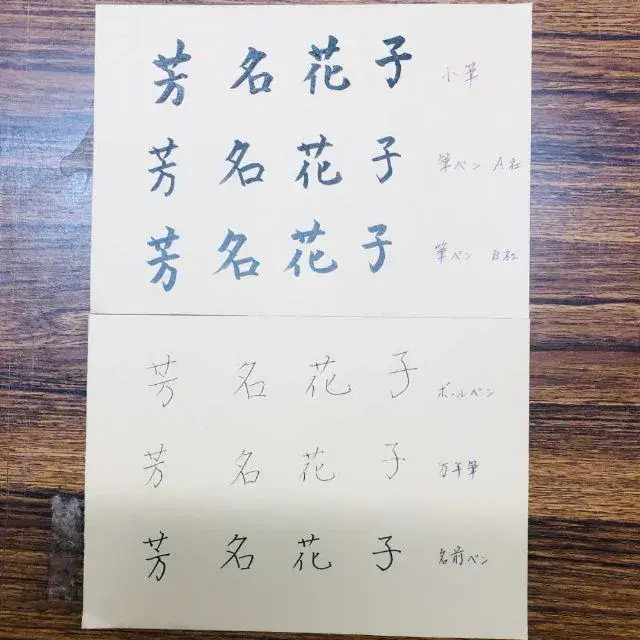 芳名花子 小筆
芳名花子 筆ペン A社
芳名花子 筆ペン B社
芳名花子 ボールペン
芳名花子 万年筆
芳名花子 名前ペン